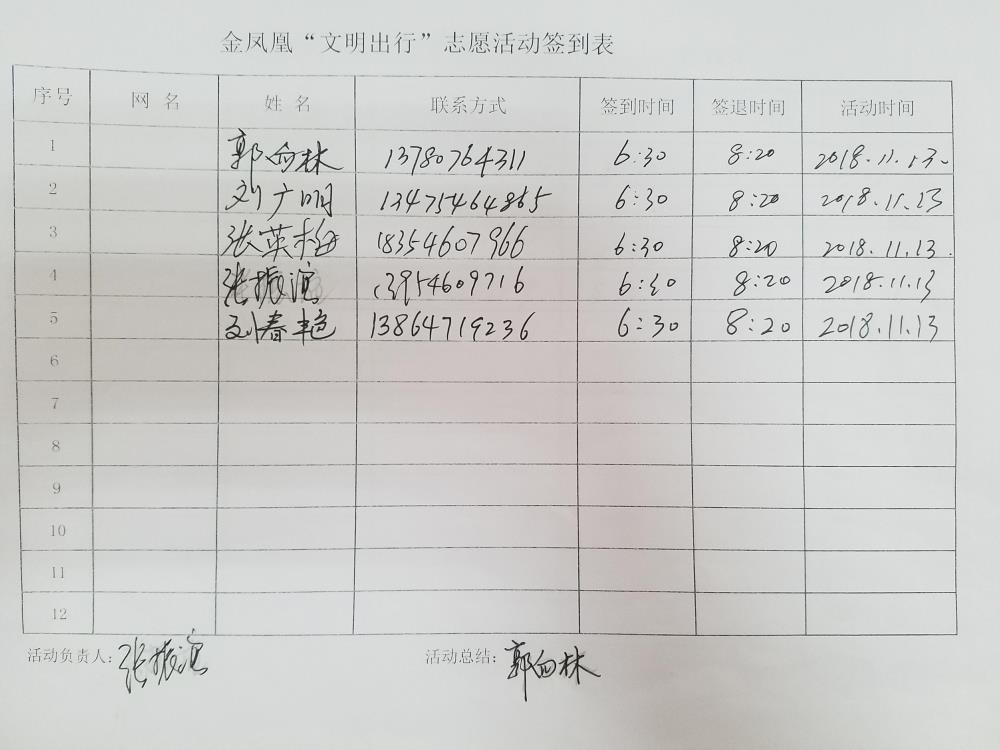 金凤凰“文明出行”志愿活动签到表
序号 网 名 姓 名 联系方式 签到时间 签退时间 活动时间
1 郭向林 13780764311 6:30 8:20 2018.11.13.
2 刘广明 13475464865 6:30 8:20 2018.11.13
3 张英梅 18354607966 6:30 8:20 2018.11.13.
4 张振滨 13954609716 6:30 8:20 2018.11.13
5 刘春艳 13864719236 6:30 8:20 2018.11.13
6
7
8
9
10
11
12
活动负责人: 张振滨 活动总结: 郭向林